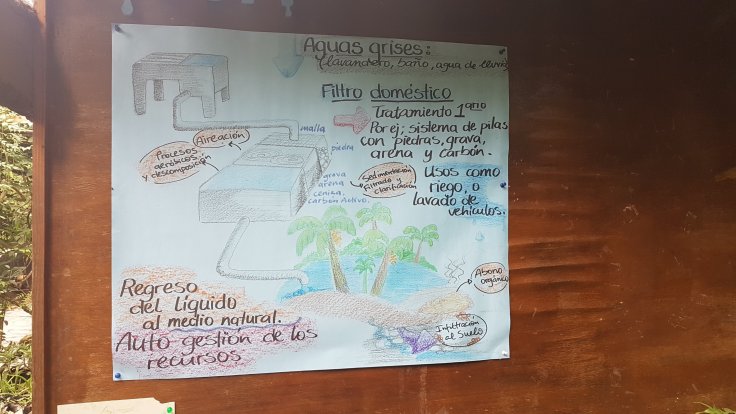 Aguas grises:
(lavandero, baño, agua de lluvia)
Filtro doméstico
Tratamiento 1ario
Por ej; sistema de pilas
con piedras, grava,
arena y carbón.
Usos como
riego, o
lavado de
vehículos.
Aireación
Procesos
aeróbicos
y descomposición
malla
piedra
grava
arena
ceniza,
carbón Activo.
Sedimentación
Filtrado y
clarificación
Abono
orgánico
Infiltración
al suelo
Regreso
del líquido
al medio natural.
Auto gestión de los
recursos